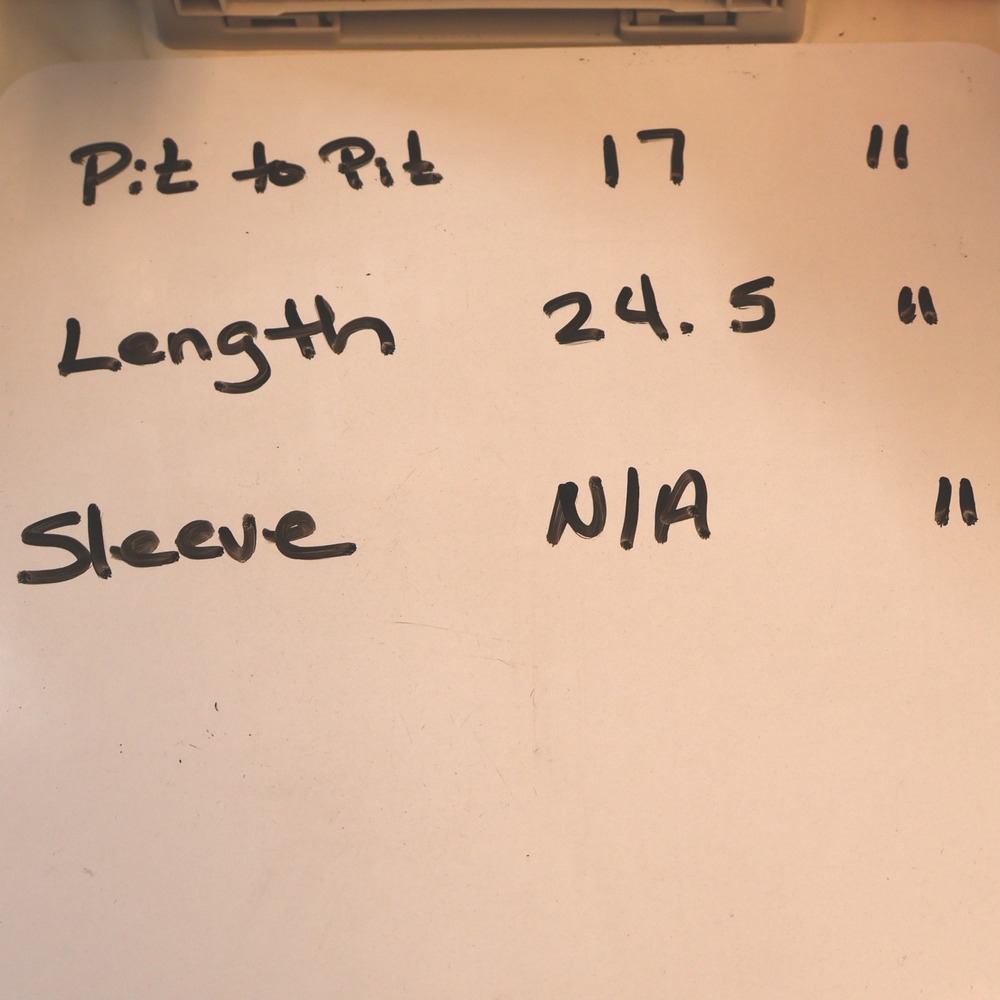 Pit to Pit 17 "
Length 24.5 "
Sleeve N/A "